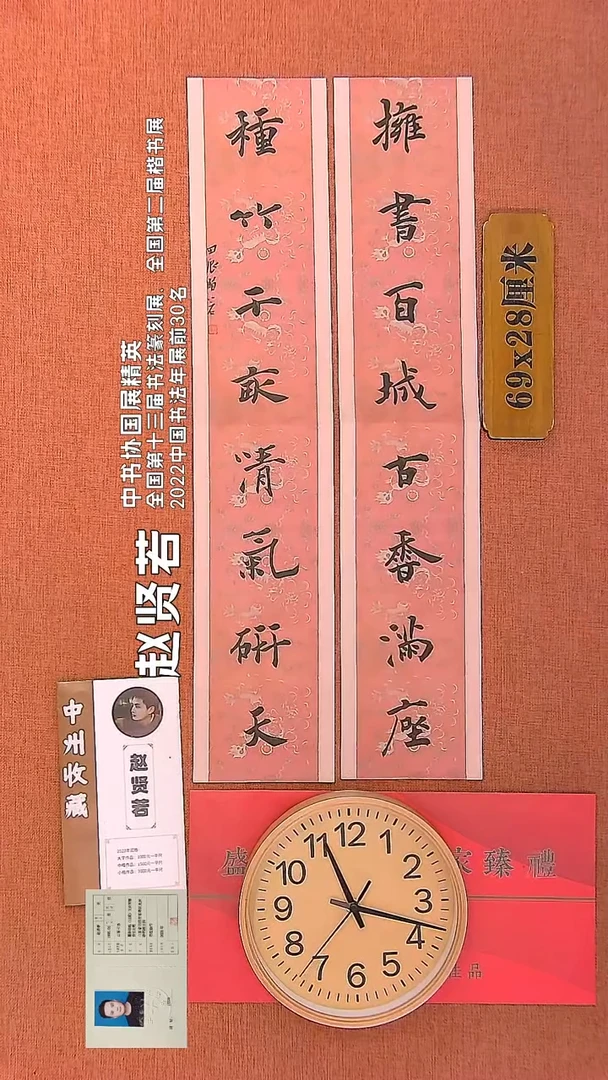 擁書百城古香滿座
種竹千畝清氣研天
69x28厘米
中书协国展精英
全国第十三届书法篆刻展、全国第二届楷书展
2022中国书法年展前30名
赵贤若
赵贤若
盛
臻禮
佳品
12
1
2
3
4
5
6
7
8
9
10
11